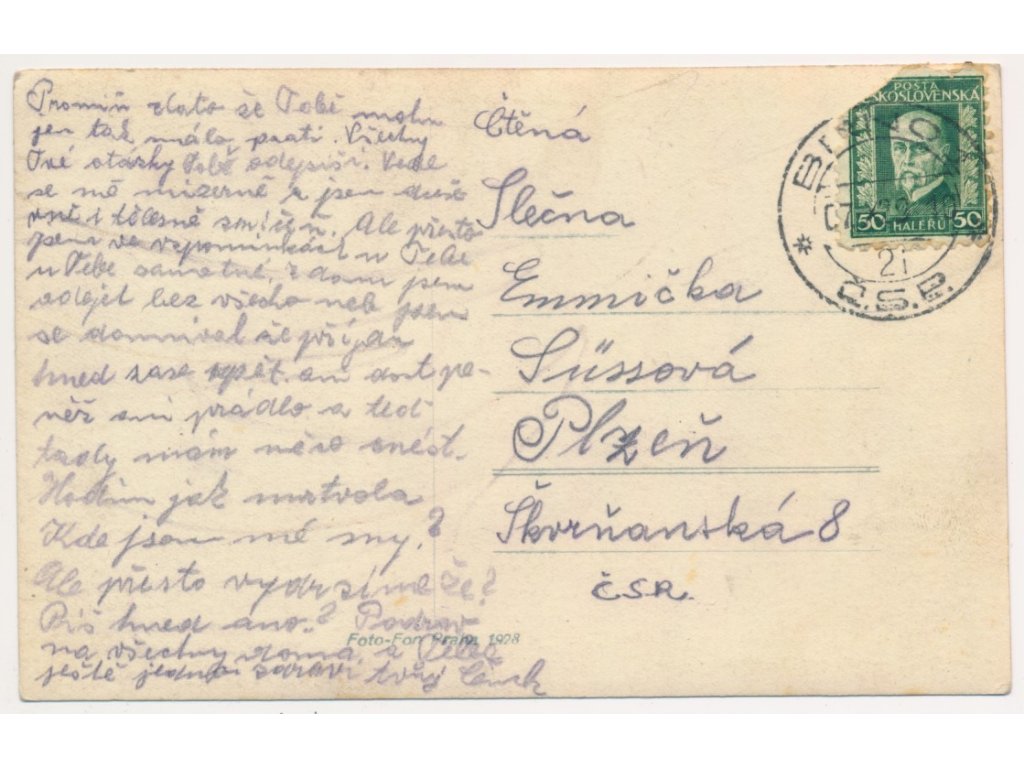 Promiň zlato že Tobě mohu
jen tak málo psáti. Všechny
Tvé otázky Tobě odepíši. Vede
se mě mizerně a jsem duše
vně i tělesně sničen. Ale přesto
jsem ve vzpomínkách u Tebe
u Tebe samotné, z domu jsem
odejel bez všeho neb jsem
se domníval že přijdu
hned zase zpět. ani dost pe-
něz ani prádlo a teď
tady mám něco snést.
Hodím jak mrtvola
Kde jsou mé sny?
Ale přesto vydržíme že?
Piš hned ano? Pozdrav
na všechny doma, a Tebe
ještě jednou zdraví tvůj
Ctěná
Slečna
Emmička
Süssová
Plzeň
Škvrňanská 8
ČSR.
Foto-Fon Praha 1928
POŠTA
ČESKOSLOVENSKÁ
50 HALÉŘŮ 50
21
Č.S.P.